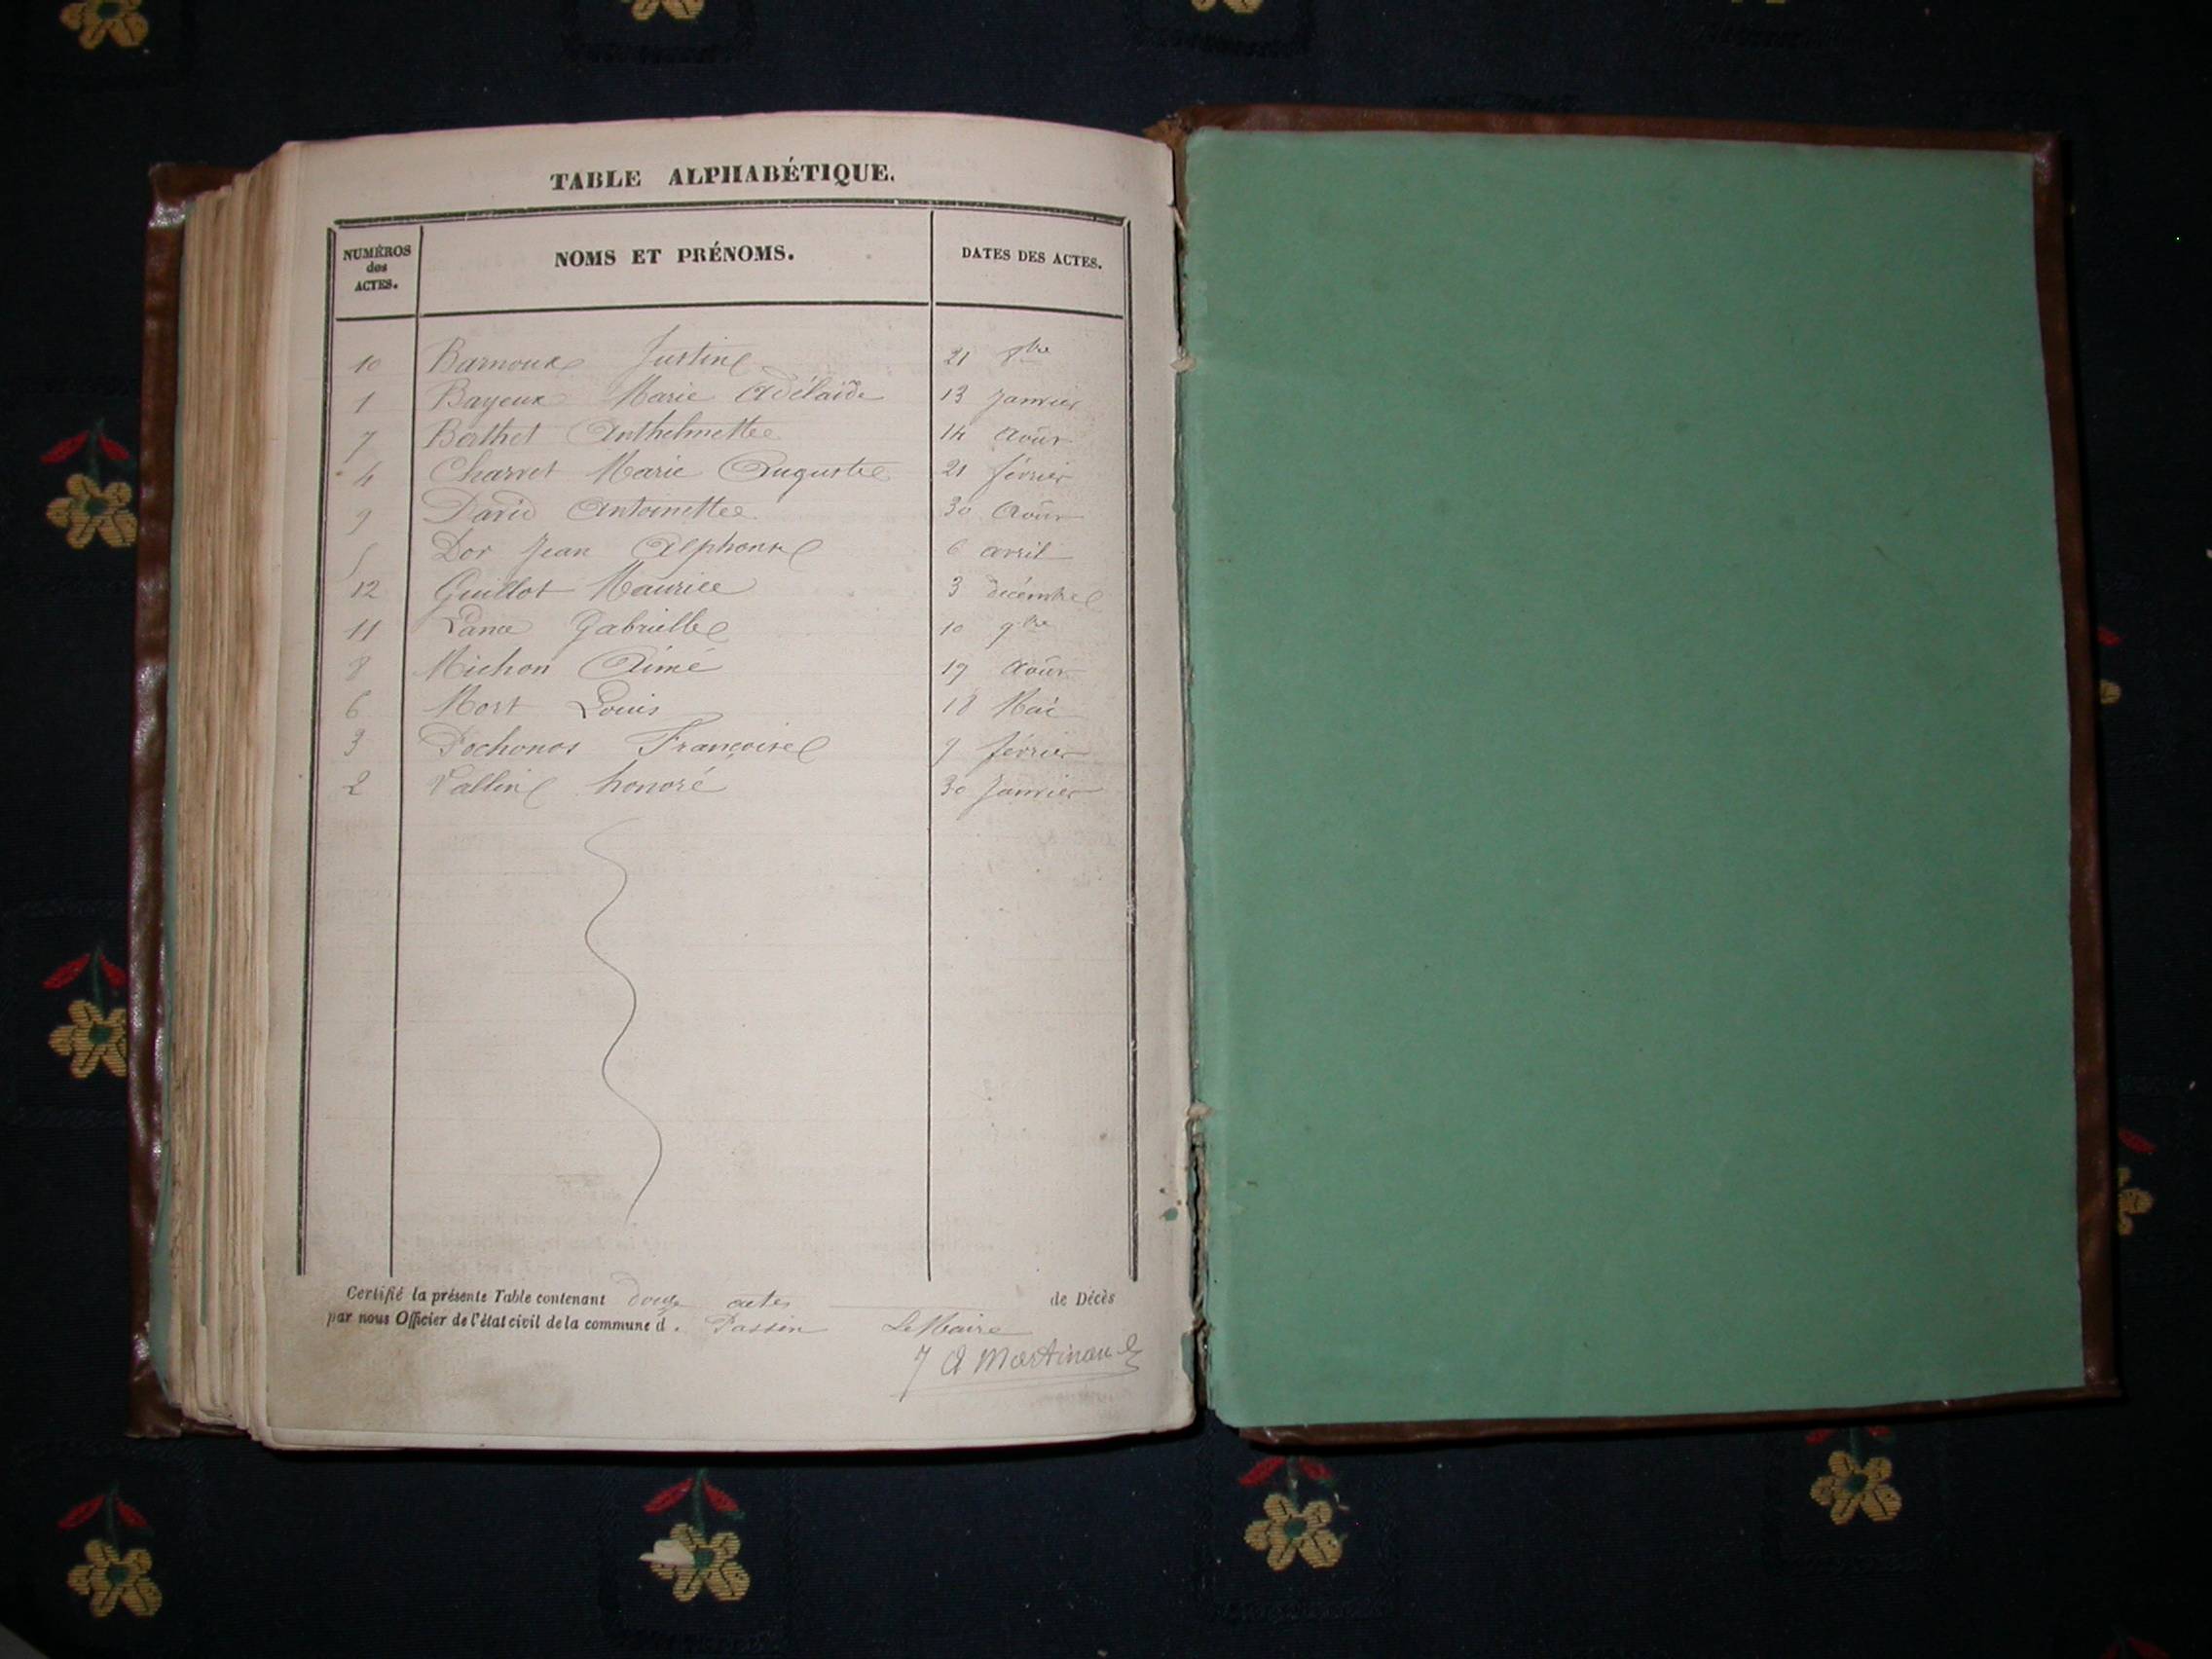 TABLE ALPHABÉTIQUE.
NUMÉROS des ACTES. NOMS ET PRÉNOMS. DATES DES ACTES.
10 Barnoux Justine 21 8bre
1 Bayeux Marie Adélaïde 13 Janvier
7 Berthet Anthelmette 14 Août
4 Charvet Marie Auguste 21 février
9 David Antoinette 30 Août
5 Dor Jean Alphonse 6 avril
12 Guillot Maurice 3 décembre
11 Gabrielle 10 9bre
8 Michon Aimé 19 Août
6 Mort Louis 18 Mai
3 Pochonos Françoise 9 février
2 Vallin honoré 30 Janvier
Certifié la présente Table contenant douze actes de Décès
par nous Officier de l'état civil de la commune d. Passin Le Maire
A Martinand